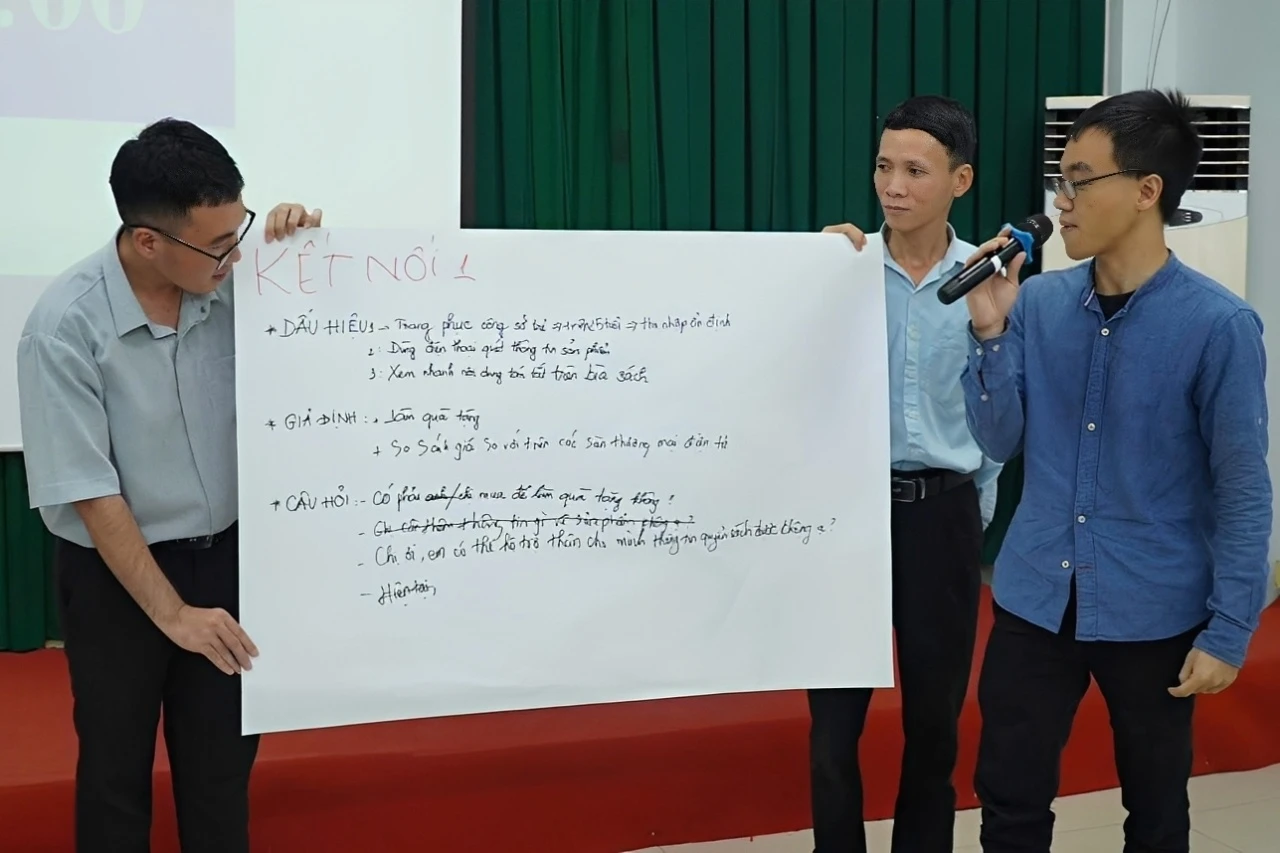 .00
KẾT NỐI 1
* DẤU HIỆU 1 → Trang phục công sở trẻ → trên 25 tuổi → thu nhập ổn định
2: Dùng điện thoại quét thông tin sản phẩm
3: Xem nhanh nội dung tóm tắt trên bìa sách
* GIẢ ĐỊNH: + Làm quà tặng
+ So sánh giá so với trên các sàn thương mại điện tử
* CÂU HỎI: - Có phải anh/chị mua để làm quà tặng không?
- thông tin gì về sản phẩm không ạ?
- Chị ơi, em có thể hỗ trợ thêm cho mình thông tin quyển sách được không ạ?
- Hiện tại,